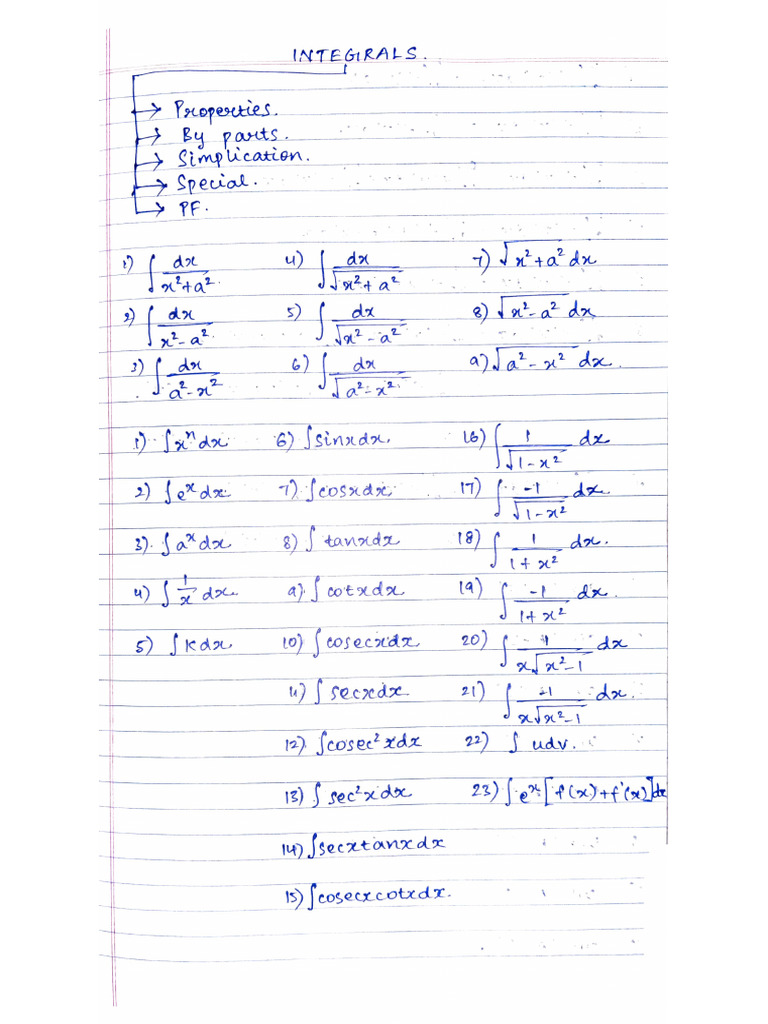 INTEGRALS.
→ Properties.
→ By parts.
→ Simplication.
→ Special.
→ PF.
1) ∫ dx/(x²+a²)  4) ∫ dx/√(x²+a²)  7) √(x²+a²) dx
2) ∫ dx/(x²-a²)  5) ∫ dx/√(x²-a²)  8) √(x²-a²) dx
3) ∫ dx/(a²-x²)  6) ∫ dx/√(a²-x²)  9) √(a²-x²) dx
1) ∫xⁿdx  6) ∫sinxdx.  16) ∫ 1/√(1-x²) dx
2) ∫eˣdx  7) ∫cosxdx  17) ∫ -1/√(1-x²) dx
3) ∫aˣdx  8) ∫ tanxdx  18) ∫ 1/(1+x²) dx.
4) ∫ 1/x dx.  9) ∫cotxdx  19) ∫ -1/(1+x²) dx.
5) ∫Kdx.  10) ∫cosecxdx  20) ∫ 1/(x√(x²-1)) dx
11) ∫ secxdx  21) ∫ -1/(x√(x²-1)) dx.
12) ∫cosec²xdx  22) ∫ udv.
13) ∫ sec²xdx  23) ∫eˣ[f(x)+f'(x)]dx
14) ∫secxtanxdx
15) ∫cosecxcotxdx.